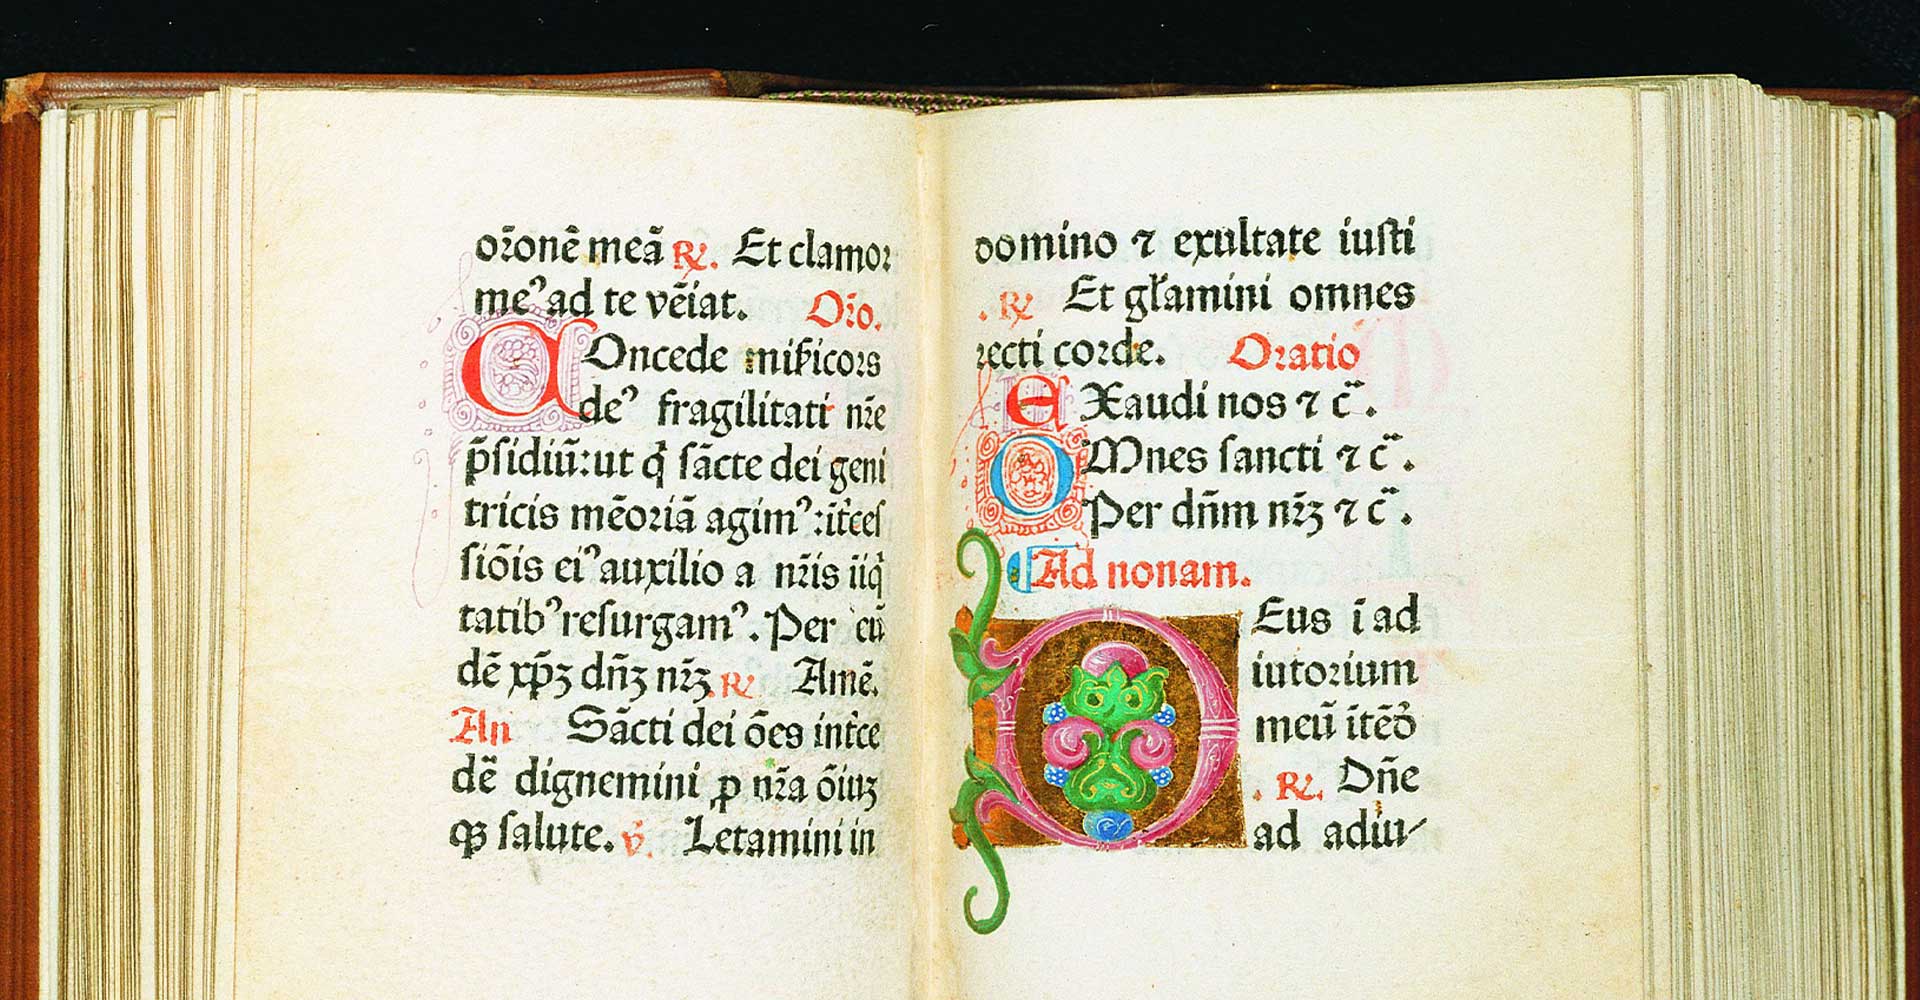 or̄onē meā ℟. Et clamor
meꝰ ad te vēiat. Or̄o.
COncede mis̄icors
deꝰ fragilitati nr̄e
p̄sidiū: ut q̄ sācte dei geni
tricis mēoriā agimꝰ: īt̄ces
siōis eiꝰ auxilio a nr̄is īiq̄
tatibꝰ resurgamꝰ. Per eū
dē xp̄ꝫ dn̄ꝫ nr̄ꝫ ℟ Amē.
An Sācti dei ōes int̄ce
dē dignemini ꝓ nr̄a ōiuꝫ
qꝫ salute. ℣. Letamini in
domino ⁊ exultate iusti
. ℟ Et gl̄amini omnes
recti corde. Oratio
EXaudi nos ⁊ c̄.
OMnes sancti ⁊ c̄.
Per dn̄m nr̄ꝫ ⁊ c̄.
¶ Ad nonam.
DEus ī ad
iutorium
meū ītēō
. ℟. Dn̄e
ad adiu-